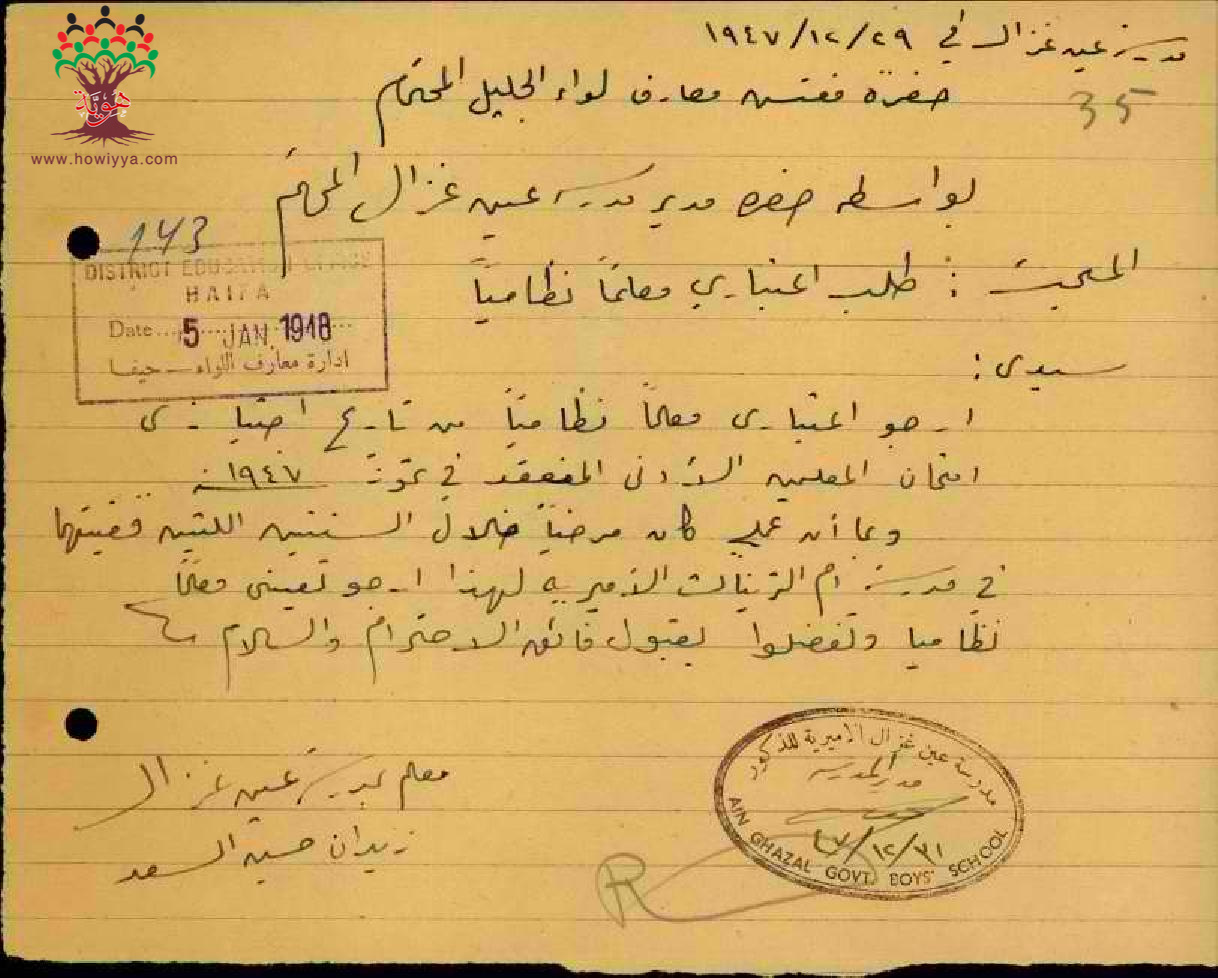 هوية
www.howiyya.com
مدرسة عين غزال في ٢٩/١٢/١٩٤٧
35
حضرة مفتش معارف لواء الجليل المحترم
بواسطة حضرة مدير مدرسة عين غزال المحترم
143
DISTRICT EDUCATION OFFICE
HAIFA
Date 5 JAN. 1948
ادارة معارف اللواء - حيفا
المبحث : طلب اعتباري معلمًا نظاميًا
سيدي :
ارجو اعتباري معلمًا نظاميًا من تاريخ اجتيازي
امتحان المعلمين الأدنى المنعقد في تموز سنة ١٩٤٧
وبما أن عملي كان مرضيًا خلال السنتين اللتين قضيتهما
في مدرسة ام الزينات الأميرية لهذا ارجو تعييني معلمًا
نظاميا وتفضلوا بقبول فائق الاحترام والسلام
معلم بمدرسة عين غزال
زيدان حسين السعد
مدرسة عين غزال الاميرية للذكور
مدير المدرسة
٤٧/١٢/٣١
AIN GHAZAL GOVT. BOYS' SCHOOL
R